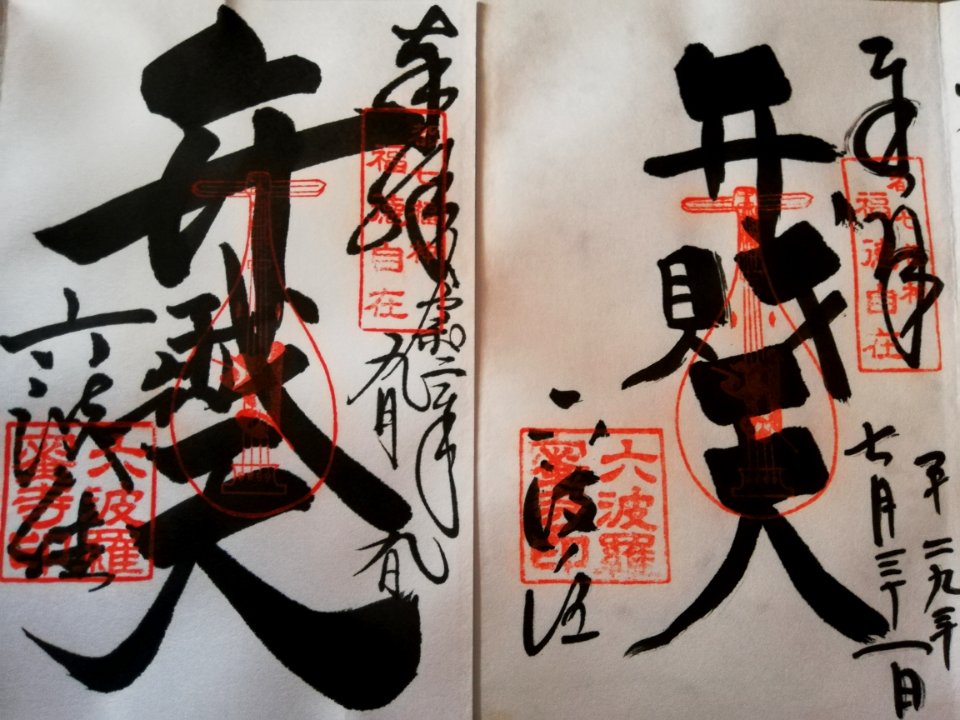 奉拝
都七福神
福徳自在
平二九年
七月三十一日
弁財天
六波羅
蜜寺印
奉拝
都七福神
福徳自在
九月九日
弁財天
六波
六波羅
蜜寺印